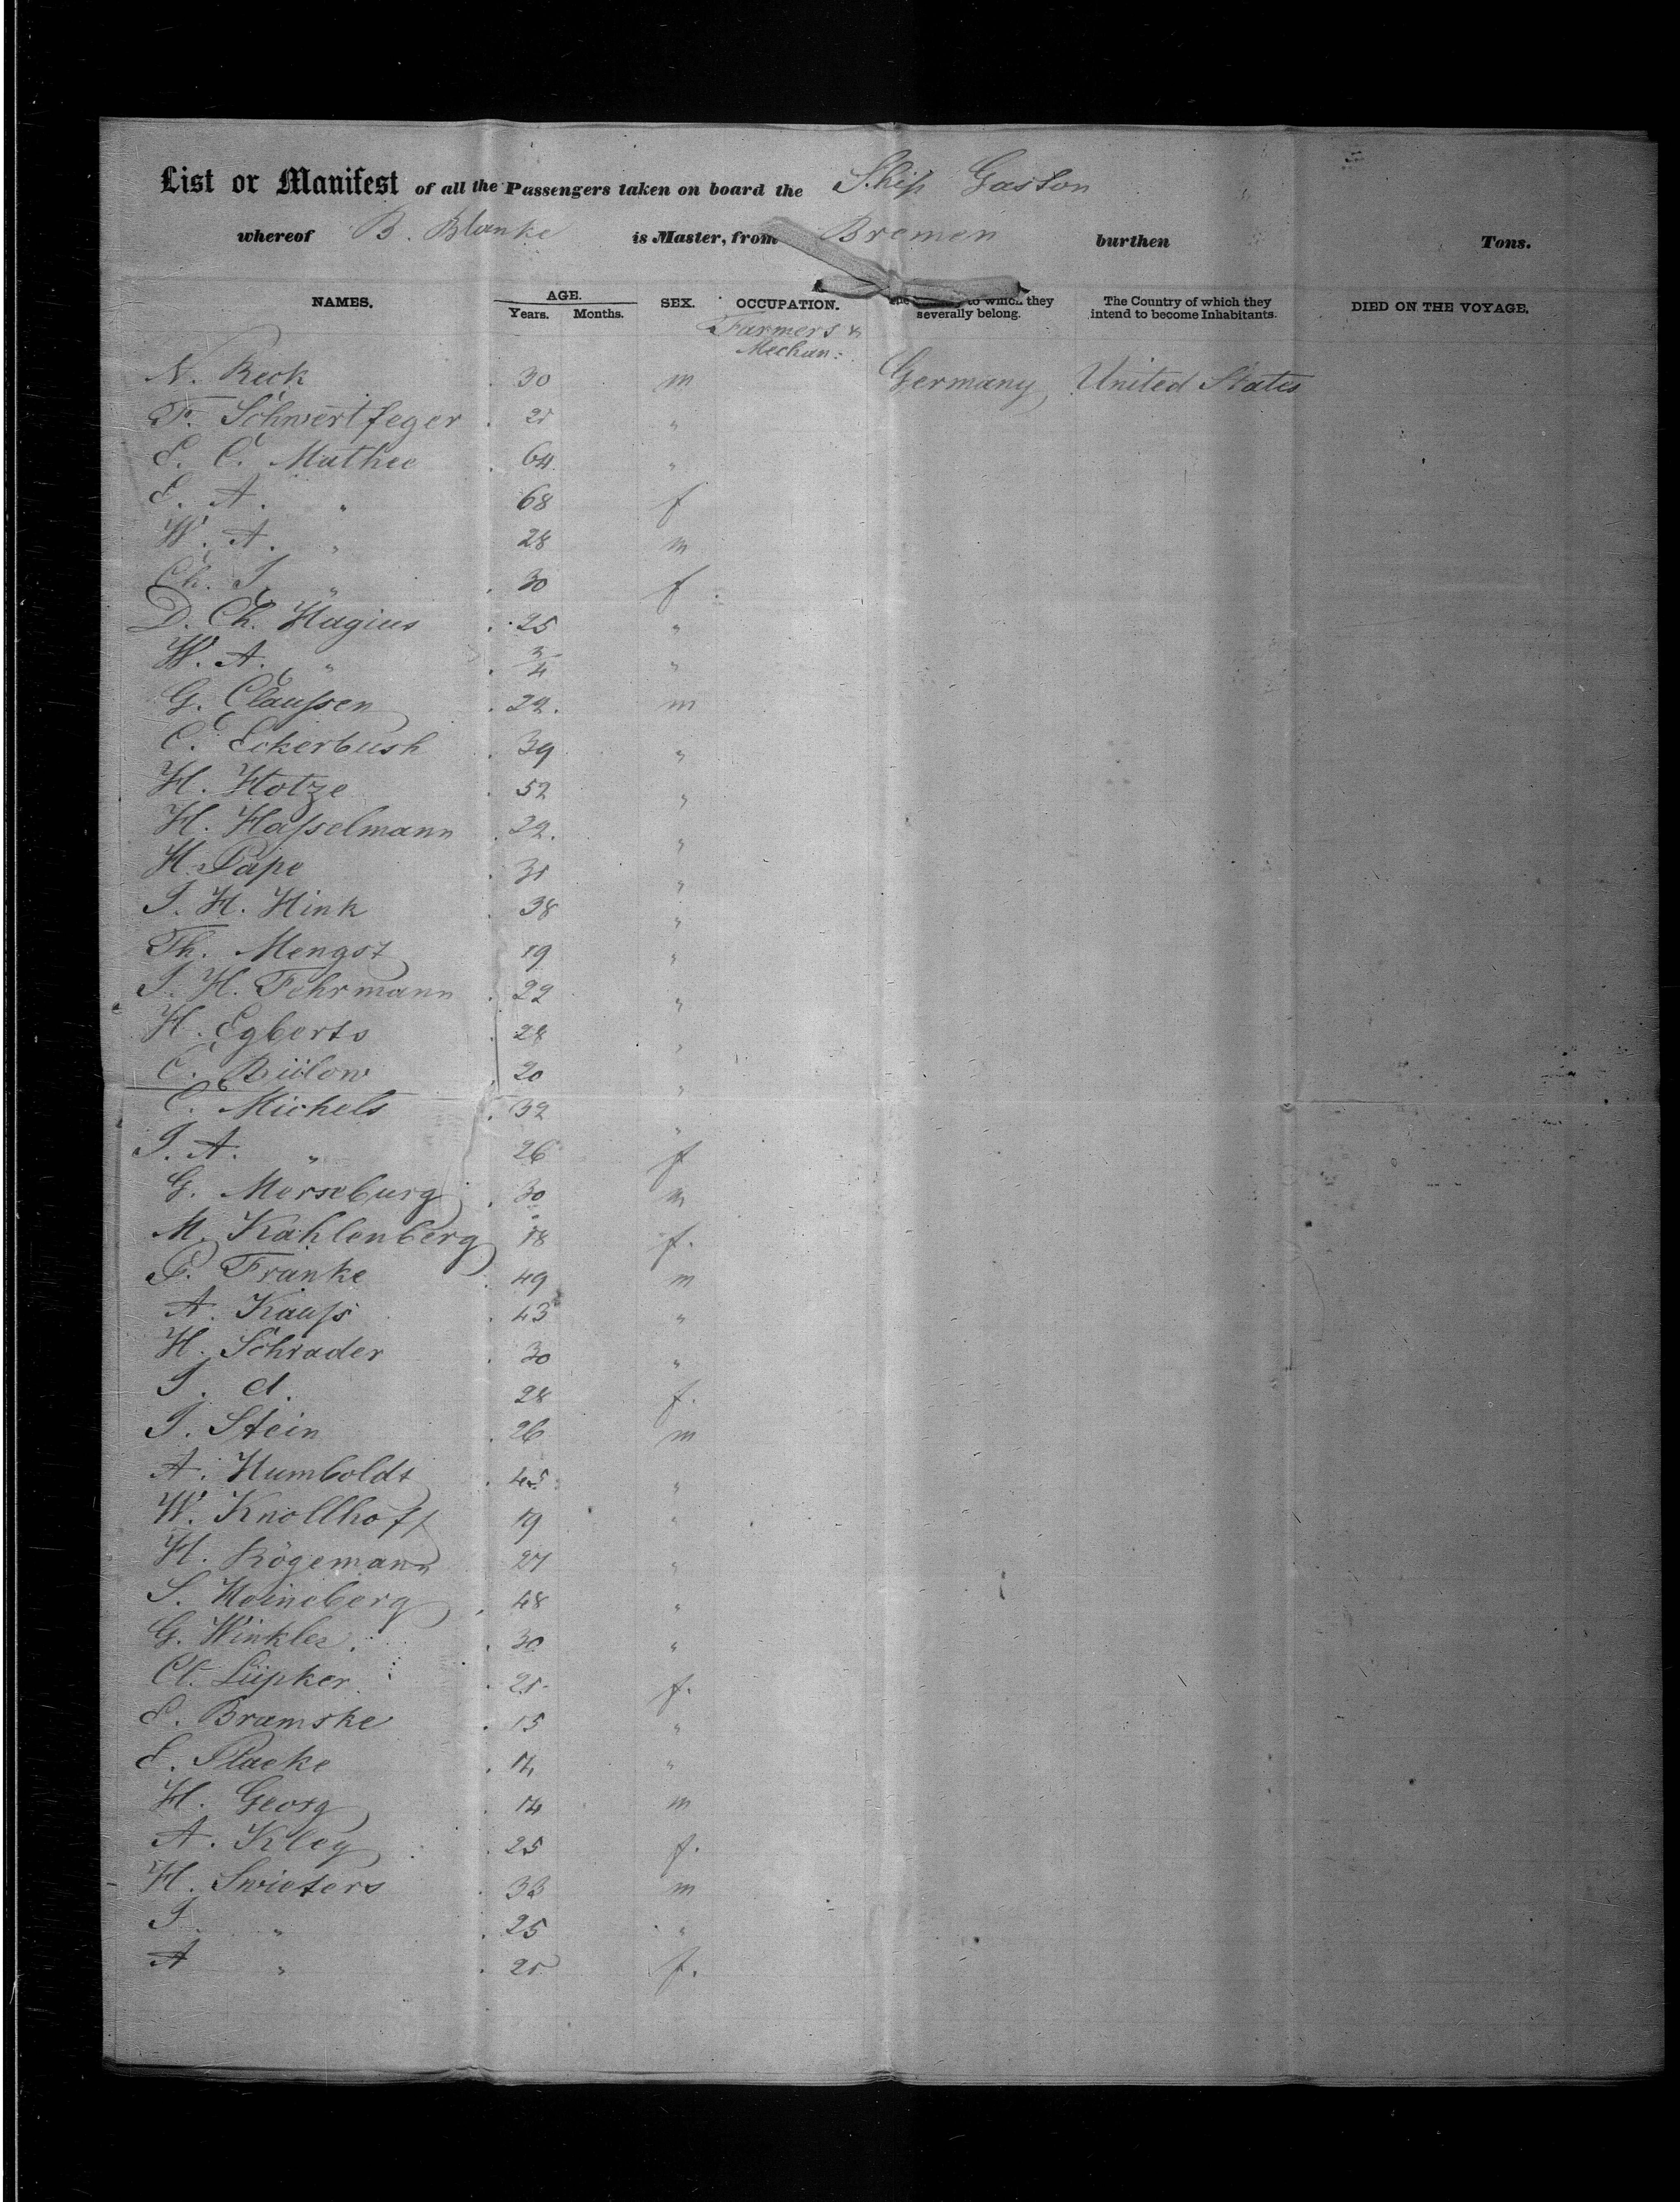 List or Manifest of all the Passengers taken on board the Ship Gaston
whereof B. Blanke is Master, from Bremen burthen Tons.
NAMES. AGE. SEX. OCCUPATION. to which they The Country of which they DIED ON THE VOYAGE.
Years. Months. severally belong. intend to become Inhabitants.
Farmers &
Mechan:
N. Reck 30 m Germany, United States
F. Schwertfeger 21 "
E. C. Mathee 64 "
E. A. " 68 f
W. A. " 28 m
Ch. J. " 30 f
D. Ch. Hagius 25 "
W. A. " 3/4 "
G. Claussen 22. m
C. Eckerbush 39 "
H. Hotze 52 "
H. Hasselmann 22. "
H. Pape 31 "
J. H. Hink 38 "
Th. Mengst 19 "
J. H. Fehrmann 22 "
H. Egberts 28 "
C. Bülow 20 "
C. Michels 32 "
J. A. " 26 f
G. Merseburg 30 m
M. Kahlenberg 18 f.
P. Franke 49 m
A. Kauss 43 "
H. Schrader 30 "
J. d. 28 f.
J. Stein 26 m
A. Humboldt 45 "
W. Knollhoff 19 "
H. Rögemann 27 "
S. Heineberg 48 "
G. Winkler. 30 "
Cl. Lüpker 21 f.
E. Bramske 15 "
E. Placke 14 "
H. Georg 14 m
A. Kley 25 f.
H. Swieters 33 m
J. " 25 "
A " 21 f.